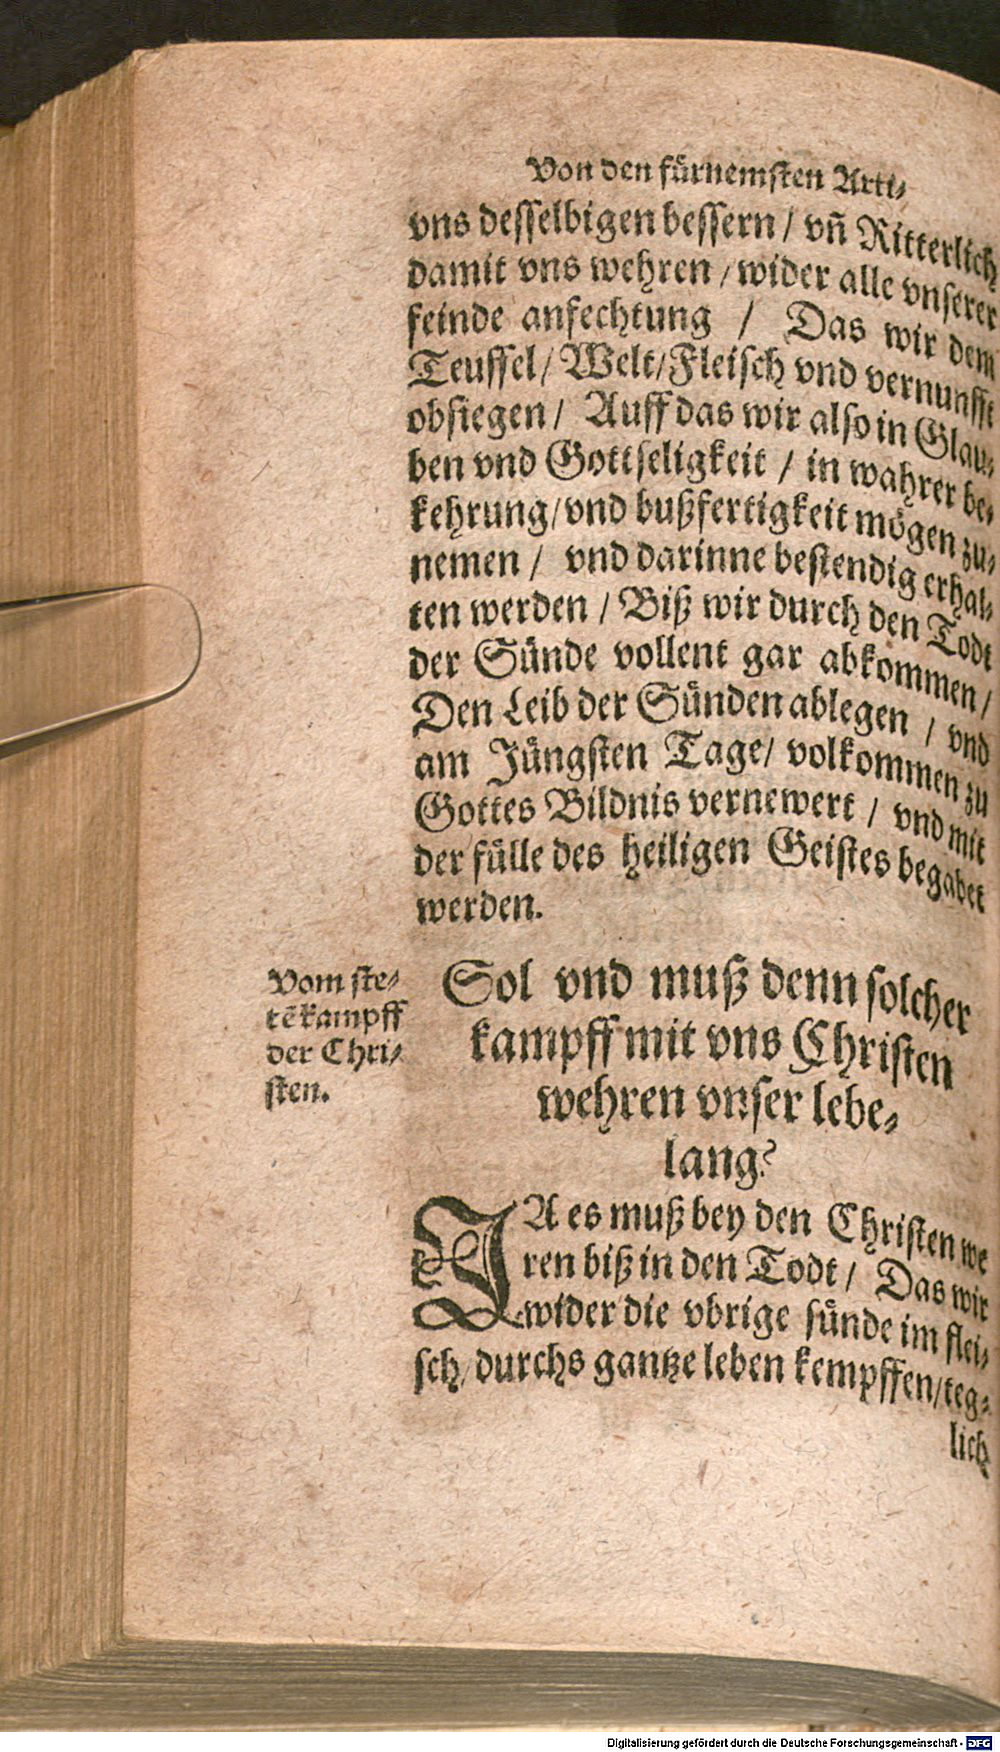 Von den fürnemsten Arti⸗
vns desselbigen bessern / vñ Ritterlich
damit vns wehren / wider alle vnserer
feinde anfechtung / Das wir dem
Teuffel / Welt / Fleisch vnd vernunfft
obsiegen / Auff das wir also in Glau⸗
ben vnd Gottseligkeit / in wahrer be⸗
kehrung / vnd bußfertigkeit mögen zu⸗
nemen / vnd darinne bestendig erhal⸗
ten werden / Biß wir durch den Todt
der Sünde vollent gar abkommen /
Den Leib der Sünden ablegen / vnd
am Jüngsten Tage / volkommen zu
Gottes Bildnis vernewert / vnd mit
der fülle des heiligen Geistes begabet
werden.
Vom ste⸗
tẽ kampff
der Chri⸗
sten.
Sol vnd muß denn solcher
kampff mit vns Christen
wehren vnser lebe⸗
lang?
JA es muß bey den Christen we
ren biß in den Todt / Das wir
wider die vbrige sünde im flei⸗
sch / durchs gantze leben kempffen / teg⸗
lich
Digitalisierung gefördert durch die Deutsche Forschungsgemeinschaft - DFG